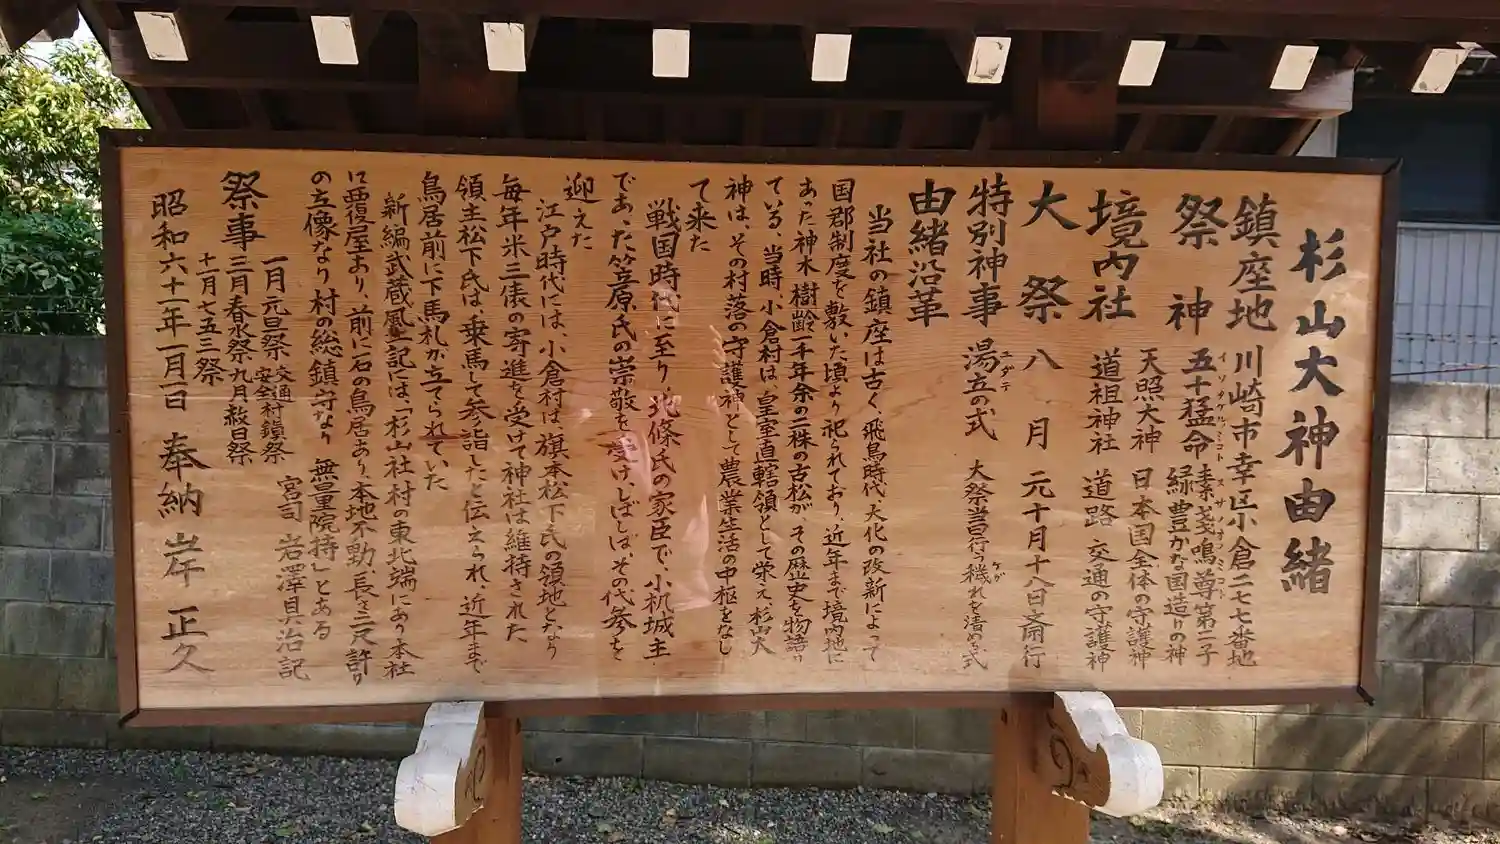 杉山大神由緒
鎮座地 川崎市幸区小倉二七七番地
祭神 五十猛命 素戔嗚尊第二子
イソタケルノミコト スサノオノミコト
緑豊かな国造りの神
天照大神 日本国全体の守護神
境内社 道祖神社 道路 交通の守護神
大祭 八月 元十月十八日斎行
特別神事 湯立の式 大祭当日行う穢れを清める式
ユダテ ケガ
由緒沿革
当社の鎮座は古く、飛鳥時代大化の改新によって
国郡制度を敷いた頃より祀られており、近年まで境内地に
あった神木樹齢一千年余の二株の古松が、その歴史を物語っ
ている、当時、小倉村は、皇室直轄領として栄え、杉山大
神は、その村落の守護神として農業生活の中枢をなし
て来た
戦国時代に至り、北條氏の家臣で、小机城主
であった笠原氏の崇敬を受け、しばしば、その代参を
迎えた
江戸時代には、小倉村は旗本松下氏の領地となり
毎年米三俵の寄進を受けて神社は維持された
領主松下氏は、乗馬して参詣したと伝えられ、近年まで
鳥居前に下馬札が立てられていた
新編武蔵風土記には、「杉山社村の東北端にあり本社
に覆屋あり、前に石の鳥居あり、本地不動、長さ三尺許り
の立像なり村の総鎮守なり 無量院持」とある
宮司 岩澤貝治記
祭事 一月元旦祭 交通安全村鎮祭
三月春水祭 九月赦日祭
十一月七五三祭
昭和六十一年一月一日 奉納 岸 正久